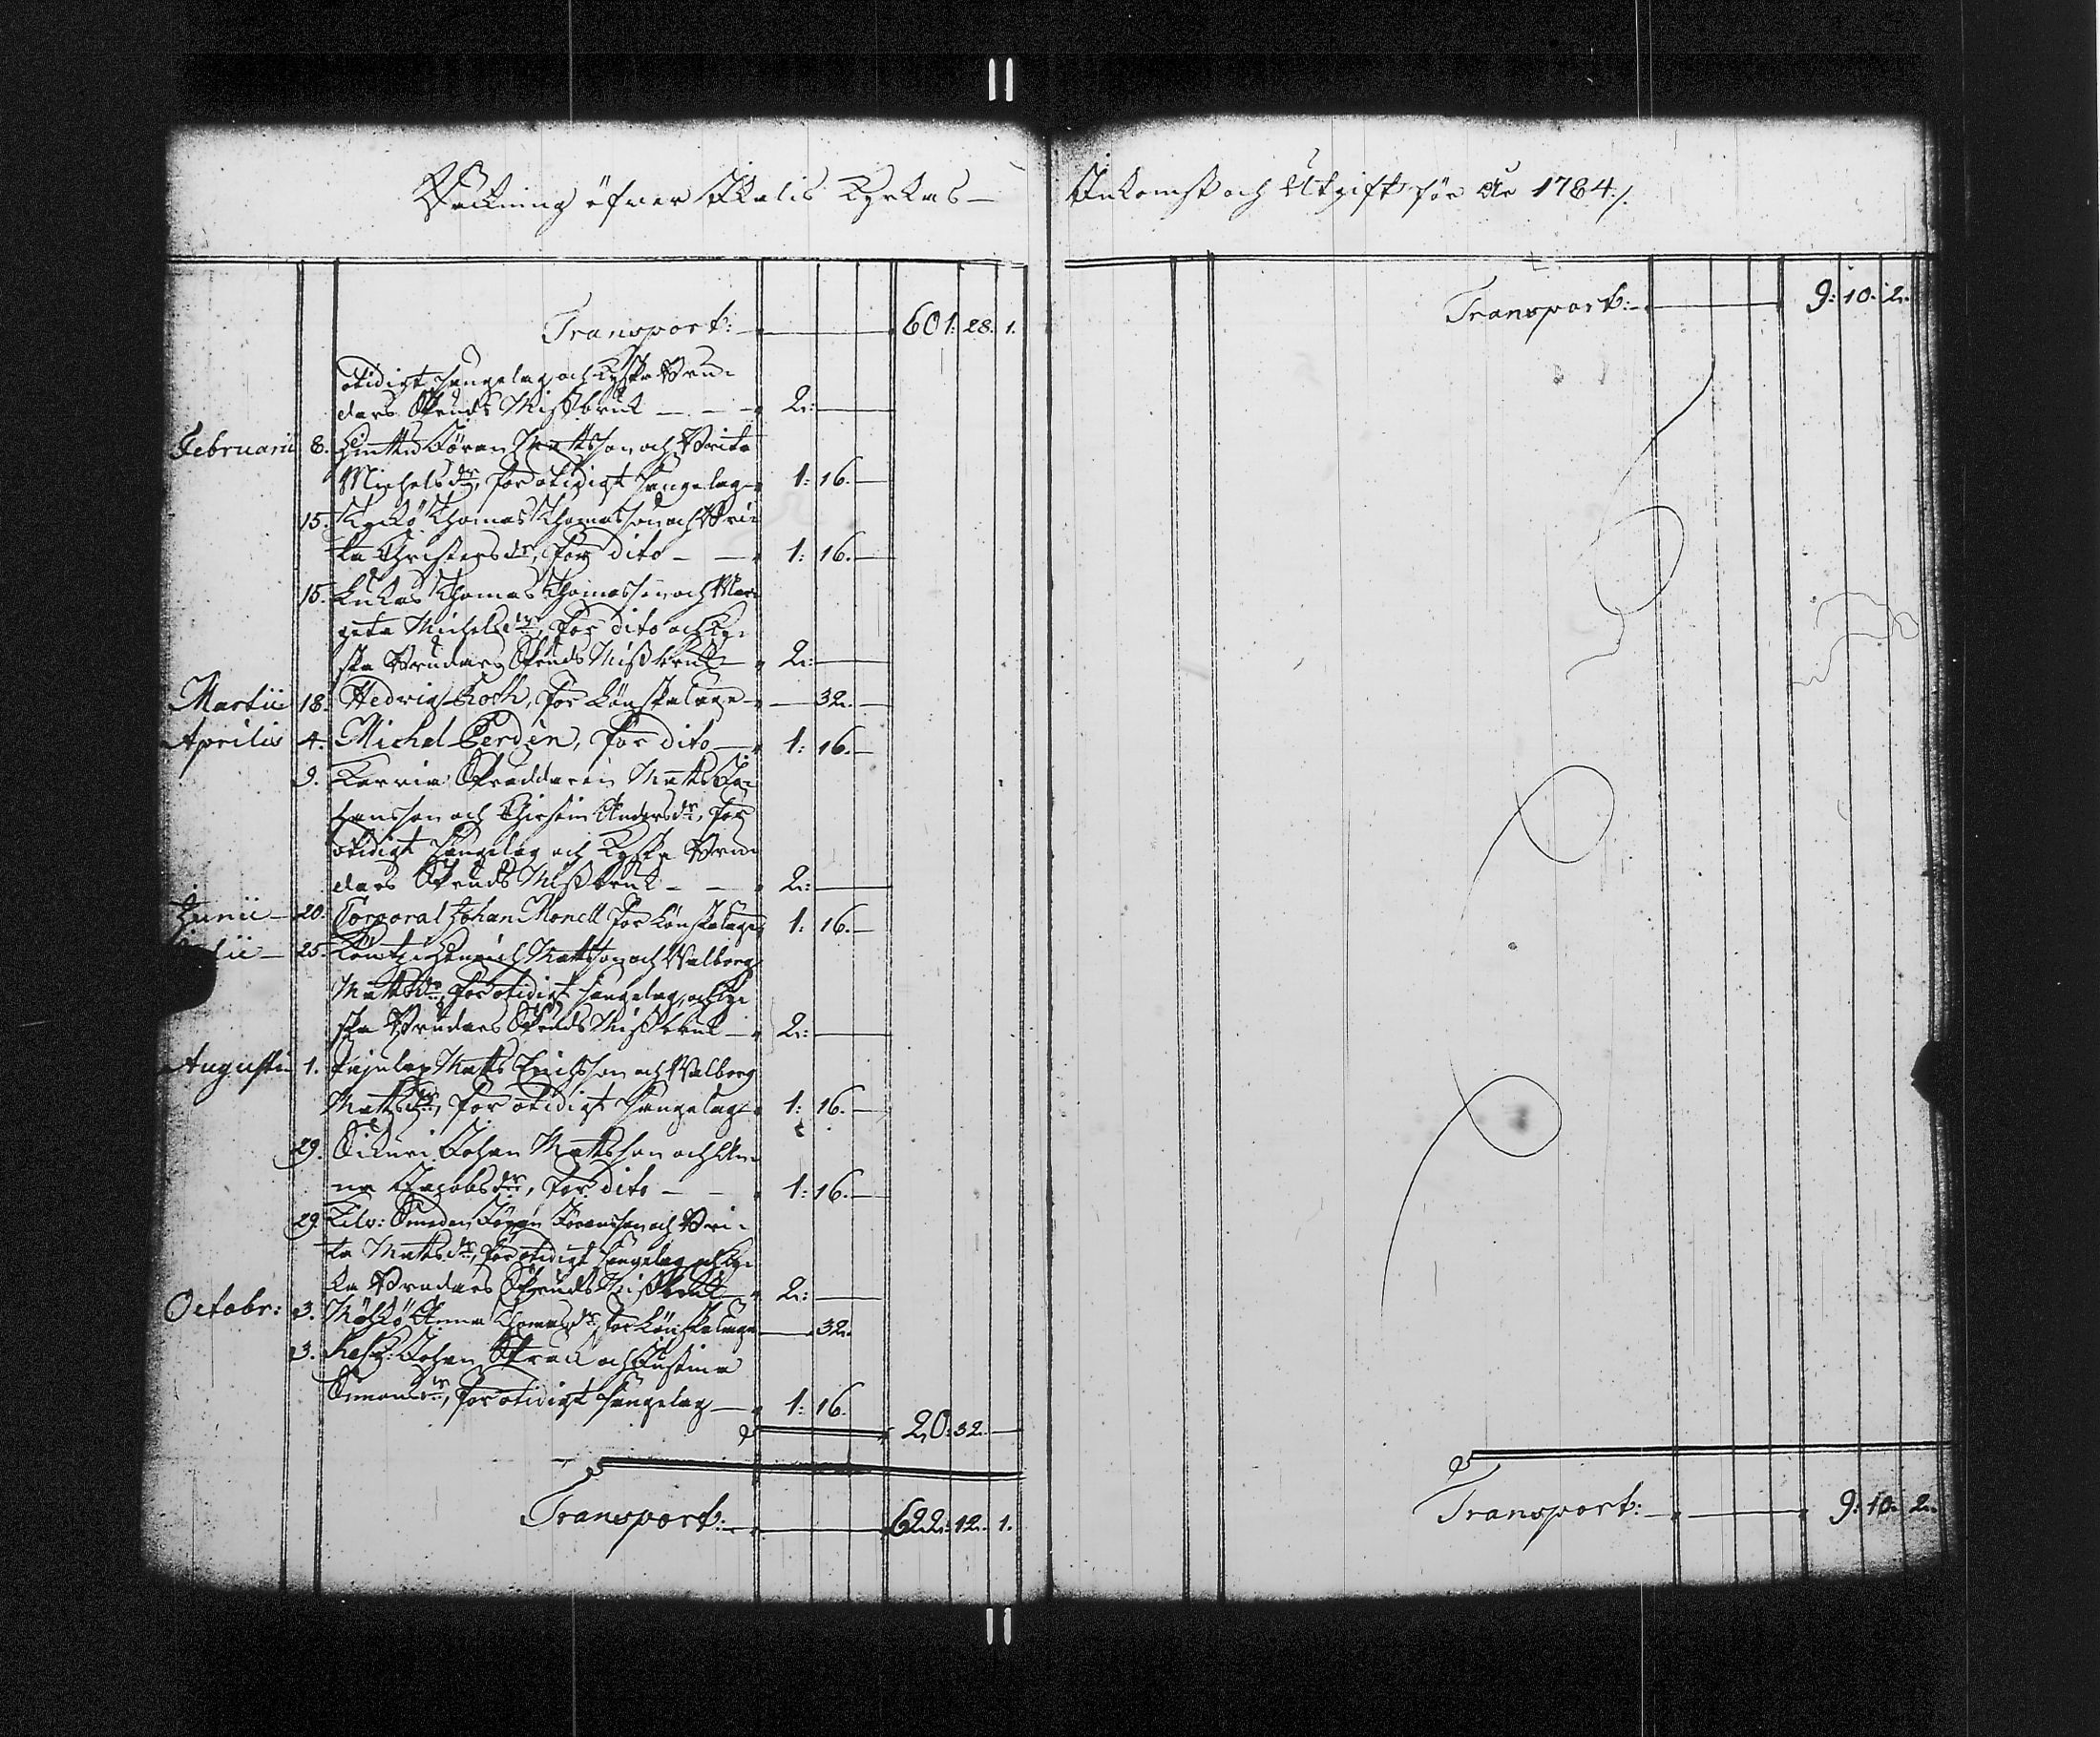 Räkning öfver Ikalis Kyrkas
Inkomst och Utgift för År 1784./.
Transport: 601: 28. 1.
otidigt sängelag och Kyska Bru-
dars Skruds Missbruk 2:
Februarii 8. Göran Mattsson och Brita
Michelsdr, för otidigt sängelag 1: 16.
15. Kyrkö Thomas Thomasson och Bri-
ta Christersdr, för dito 1: 16.
15. Lukas Thomas Thomasson och Mar-
geta Michelsdr, för dito och Ky-
ska Brudars Skruds Missbruk 2:
Martii 18. Hedvig Roth, för Lönskaläge 32.
Aprilis 4. Michel Perdin, för dito 1: 16.
9. Karvia Skräddaren Matts Jo-
hansson och Andersdr, för
otidigt Sängelag och Kyska Bru-
dars Skruds Missbruk 2:
Junii 20. Corporal Johan Monell för Lönskaläge 1: 16.
25. Henrich Mattsson och Walborg
Mattsdr, för otidigt sängelag, och Ky-
ska Brudars Skruds Missbruk 2:
Augusti 1. Matts Erichsson och Walborg
Mattsdr, för otidigt Sängelag 1: 16.
29. Johan Mattsson och An-
na Jacobsdr, för dito 1: 16.
29. Smeden Göran Göransson och Bri-
ta Mattsdr, för otidigt Sängelag och Ky-
ka Brudars Skruds Missbruk 2:
Octobr: 3. Anna Thomasdr, för Lönskaläge 32.
3. Johan Skrack och Justina
Simonsdr, för otidigt sängelag 1: 16.
20: 32.
Transport: 622: 12. 1.
Transport: 9: 10. 2.
Transport: 9: 10. 2.